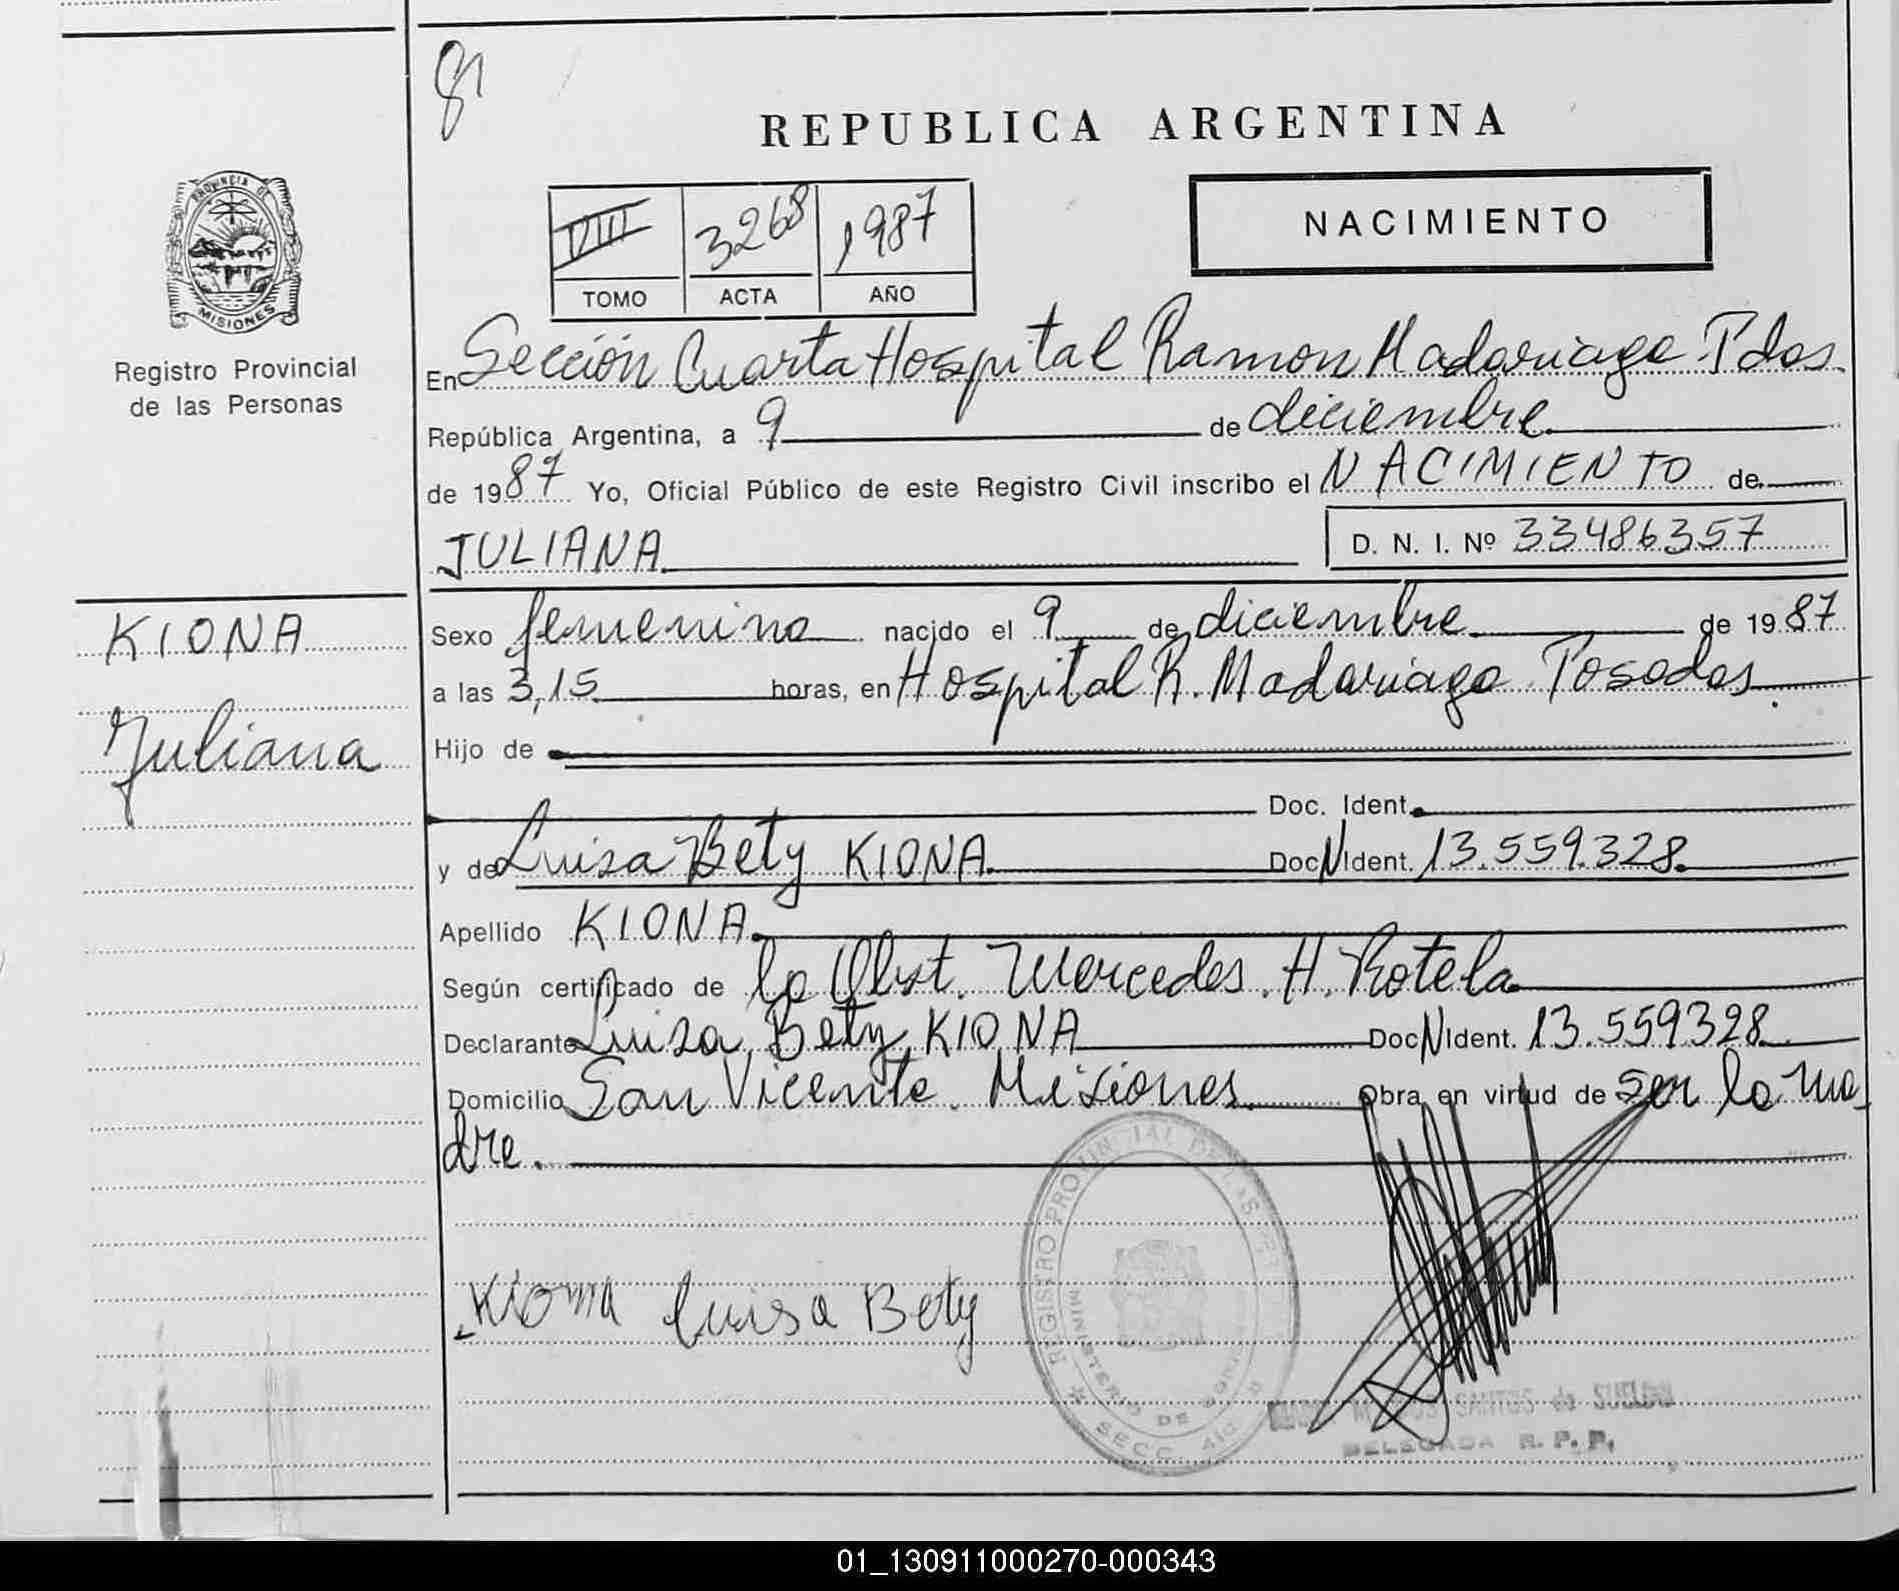 81
REPUBLICA ARGENTINA
PROVINCIA DE
MISIONES
Registro Provincial
de las Personas
VIII 3268 1987
TOMO ACTA AÑO
NACIMIENTO
En Sección Cuarta Hospital Ramon Madariaga. Pdas.
República Argentina, a 9 de diciembre
de 1987 Yo, Oficial Público de este Registro Civil inscribo el NACIMIENTO de
JULIANA D. N. I. Nº 33486357
KIONA
Juliana
Sexo femenino nacido el 9 de diciembre de 1987
a las 3,15 horas, en Hospital R. Madariaga Posadas.
Hijo de
Doc. Ident.
y de Luisa Bety KIONA Doc N Ident. 13.559.328.
Apellido KIONA.
Según certificado de la Obst. Mercedes. H. Rotela
Declarante Luisa Bety KIONA Doc N Ident. 13.559328
Domicilio San Vicente. Misiones. Obra en virtud de ser la ma-
dre.
Kiona Luisa Bety
REGISTRO PROVINCIAL DE LAS
MINISTERIO DE
SECC. 4ta
SANTOS de
DELEGADA R. P. P.
01_130911000270-000343